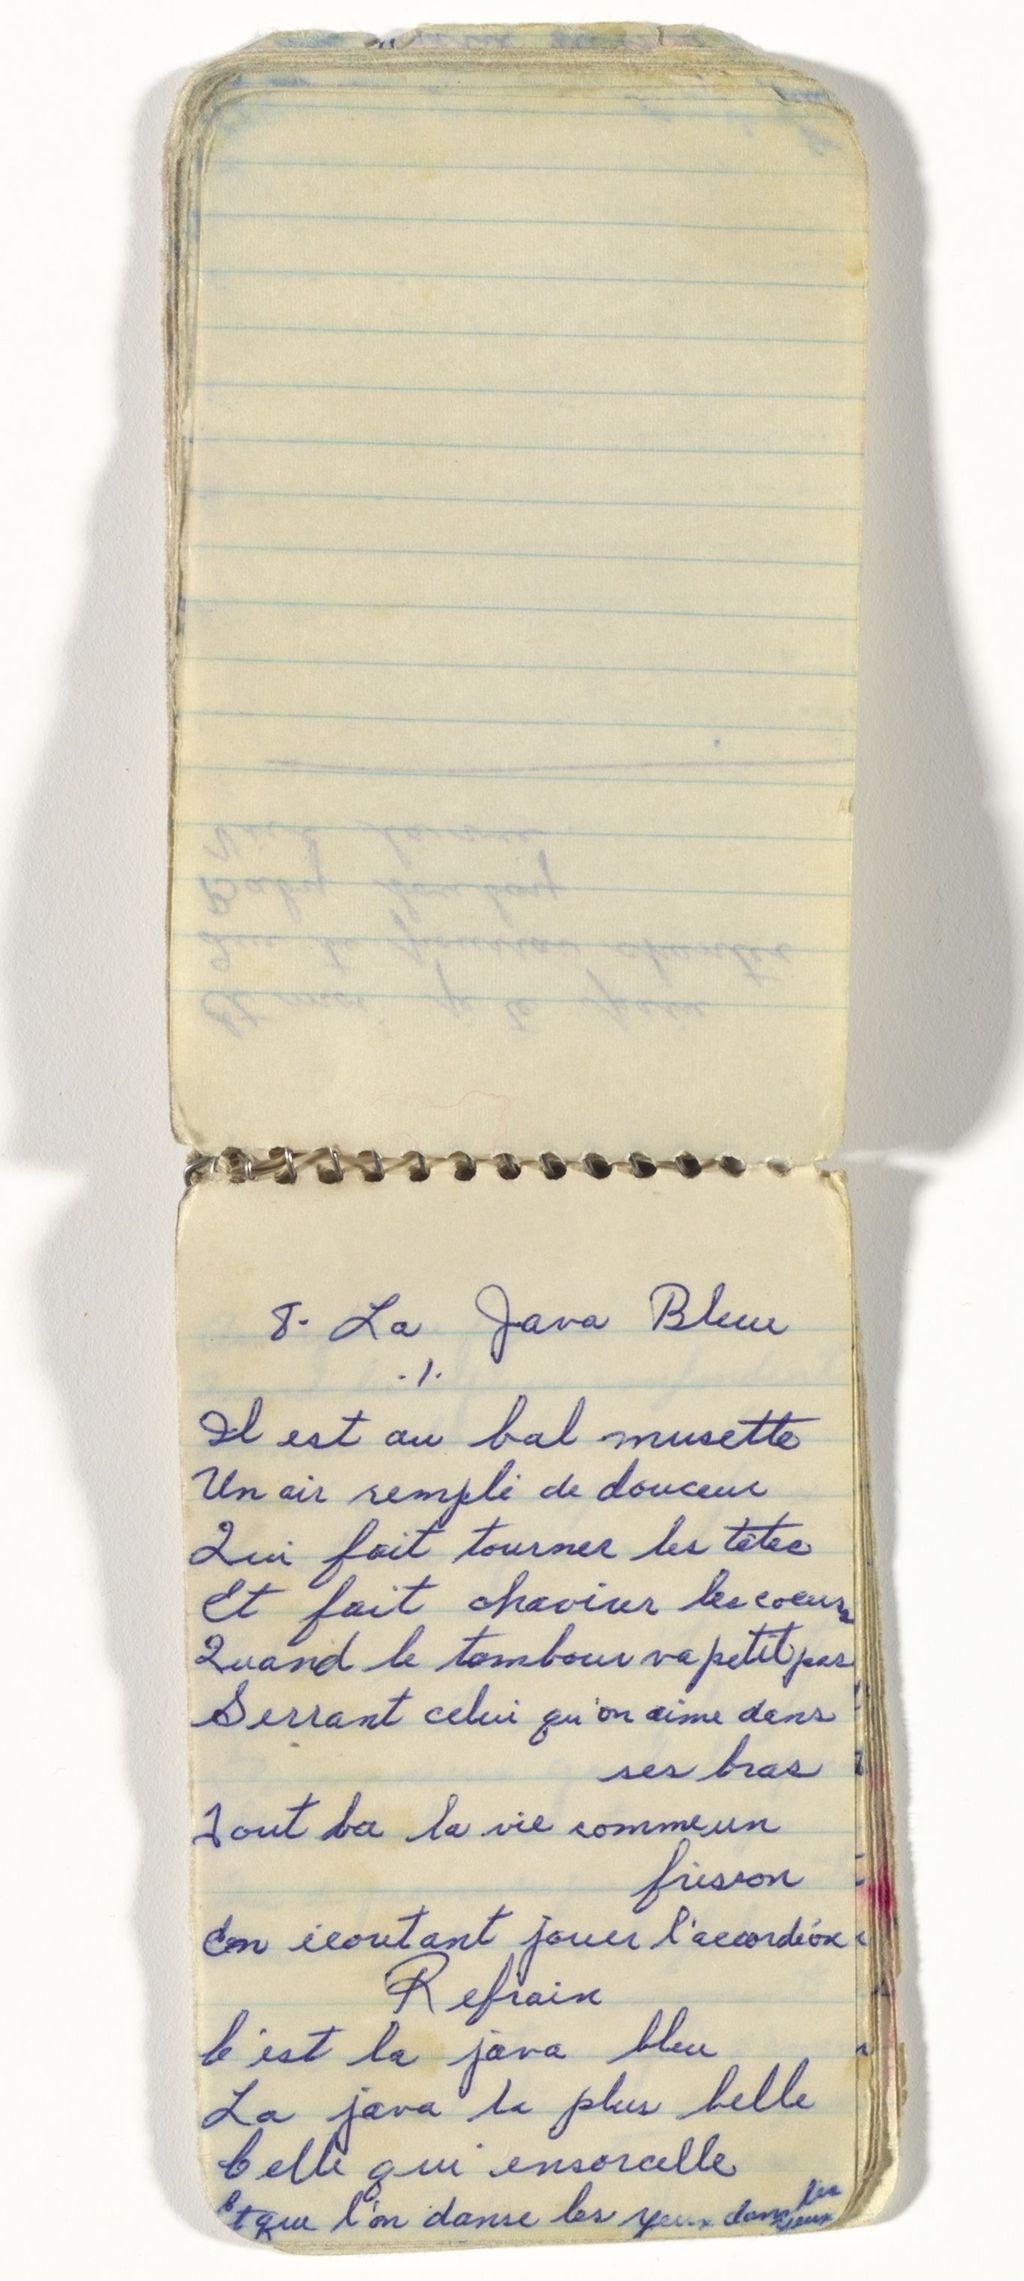 8- La Java Bleue
.1.
Il est au bal musette
Un air rempli de douceur
Qui fait tourner les têtes
Et fait chavirer les coeurs
Quand le tambour va petit pas
Serrant celui qu'on aime dans
ses bras
Tout ba la vie comme un
frisson
En écoutant jouer l'accordéon
Refrain
C'est la java bleu
La java la plus belle
Celle qui ensorcelle
Et que l'on danse les yeux dans les
yeux